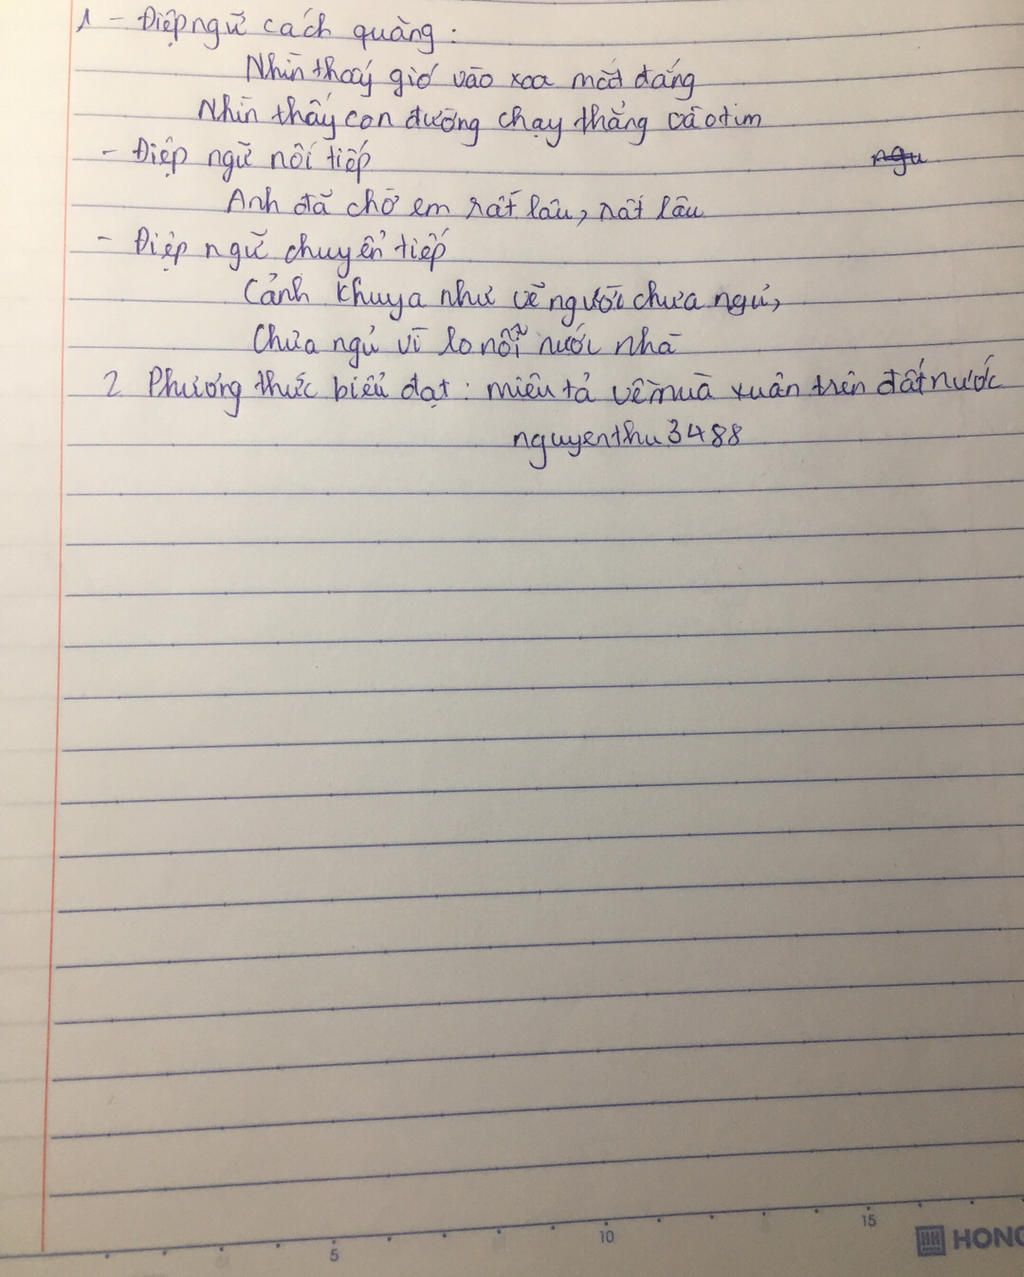 1 - Điệp ngữ cách quãng:
Nhìn thấy gió vào xoa mắt đắng
Nhìn thấy con đường chạy thẳng vào tim
- Điệp ngữ nối tiếp
ngu
Anh đã chờ em rất lâu, rất lâu
- Điệp ngữ chuyển tiếp
Cảnh khuya như vẽ người chưa ngủ,
Chưa ngủ vì lo nỗi nước nhà
2 Phương thức biểu đạt: miêu tả về mùa xuân trên đất nước
nguyenthu3488
5 10 15
HONG